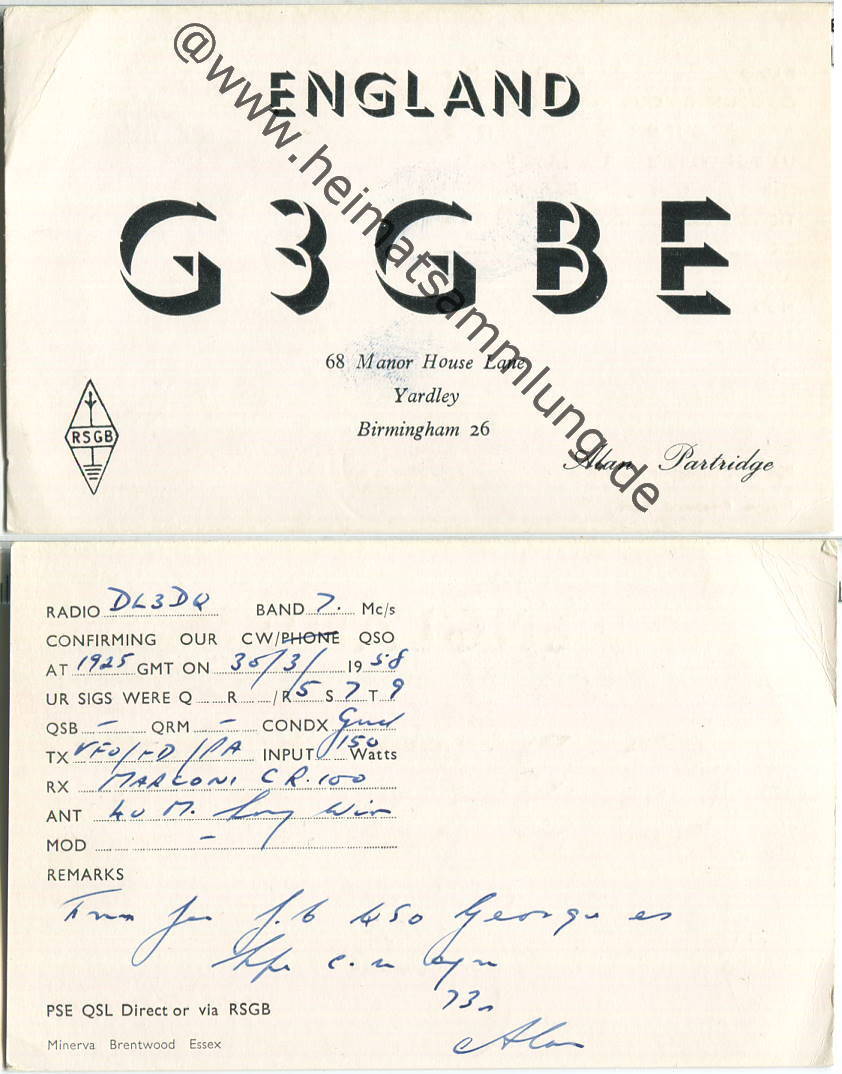 @www.heimatsammlung.de
ENGLAND
G3GBE
68 Manor House Lane
Yardley
Birmingham 26
RSGB
Alan Partridge
RADIO DL3DQ BAND 7. Mc/s
CONFIRMING OUR CW/PHONE QSO
AT 1925 GMT ON 30/3/ 1958
UR SIGS WERE Q R /R5 S7 T9
QSB – QRM – CONDX Gud
TX VFO/FD/PA INPUT 150 Watts
RX MARCONI CR.100
ANT 40 M. Long Wire
MOD –
REMARKS
QSO George es
73s
PSE QSL Direct or via RSGB
Alan
Minerva Brentwood Essex